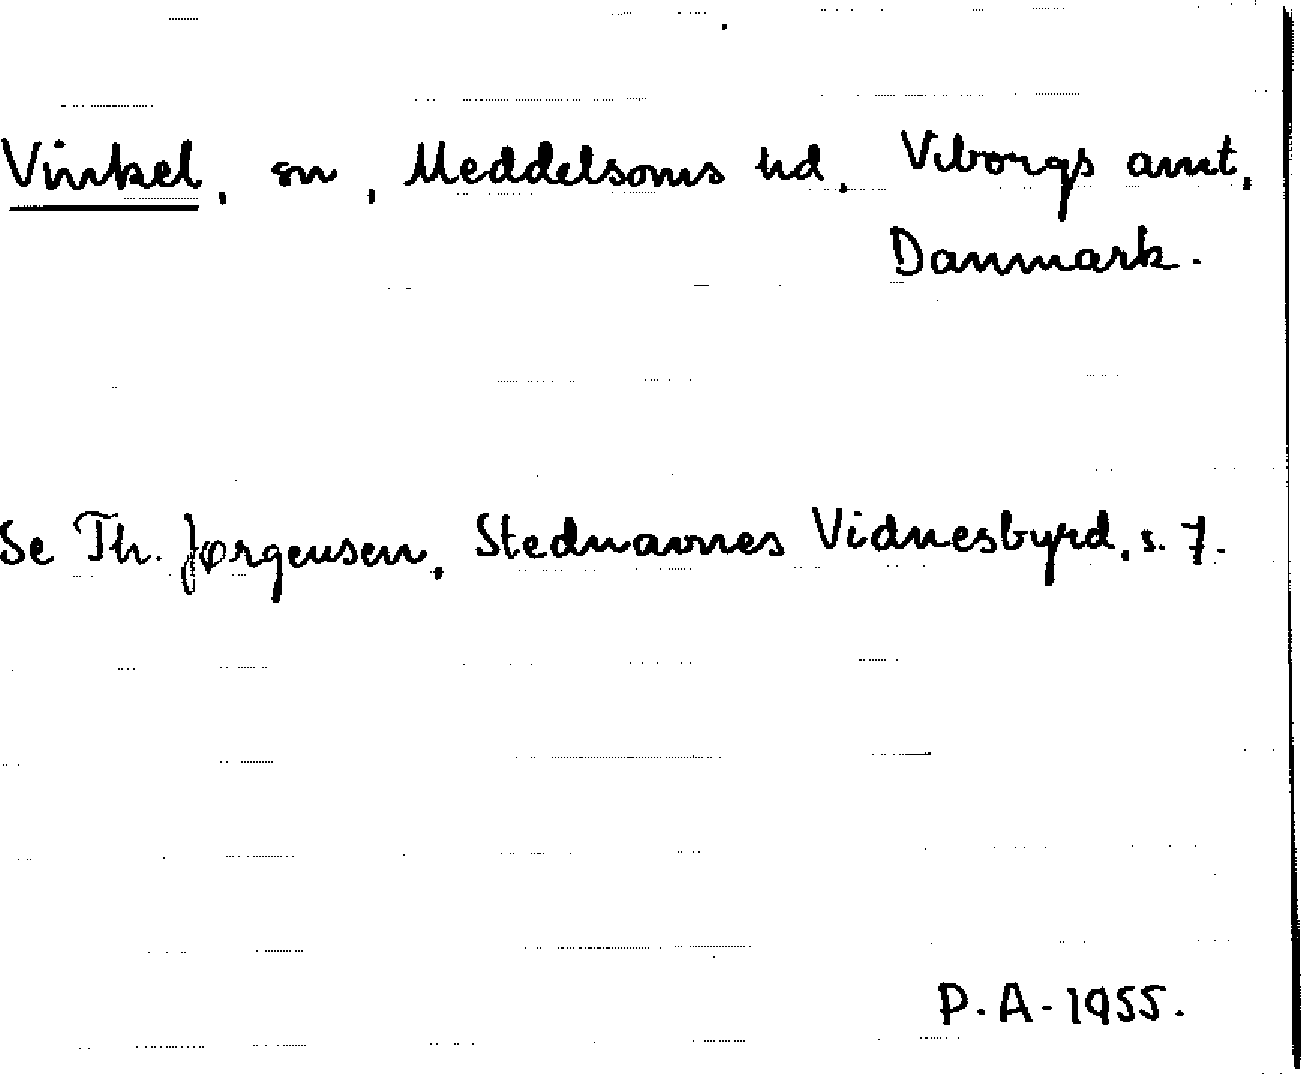 Vinkel, sn, Meddelsoms hd, Viborgs amt,
Danmark.
Se Th. Jørgensen, Stednavnes Vidnesbyrd, s. 7.
P.A-1955.